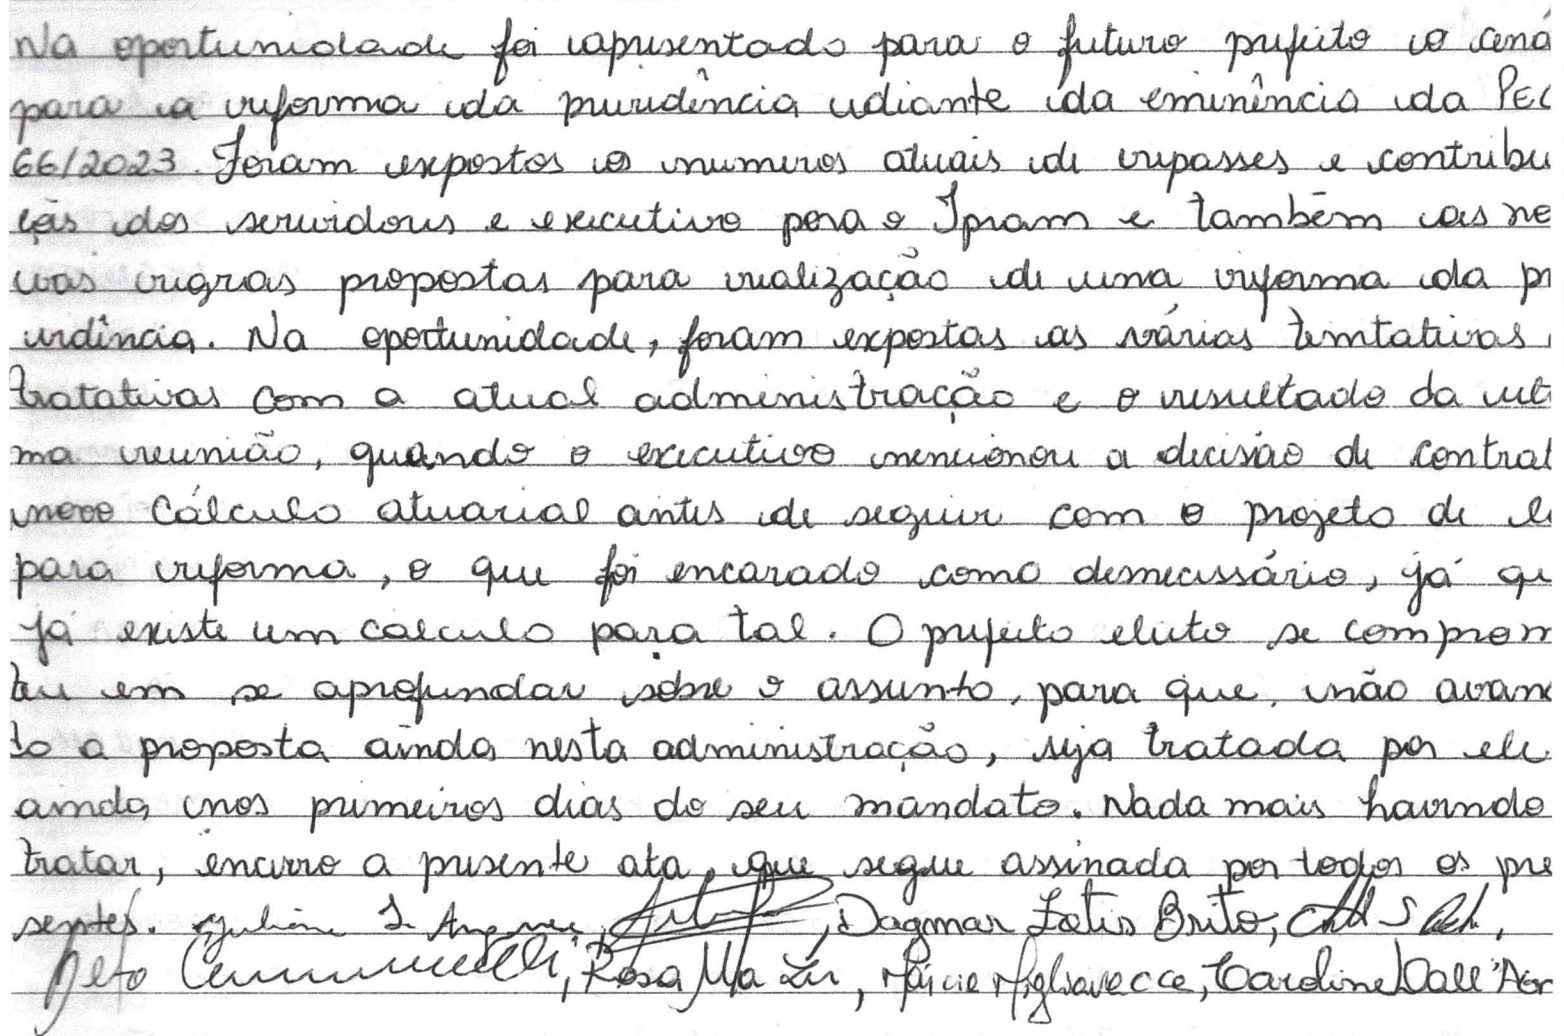 Na oportunidade foi apresentado para o futuro prefeito o cená
para a reforma da previdência diante da eminência da PEC
66/2023. Foram expostos os numeros atuais de repasses e contribu
ções dos servidores e executivo para o Ipram e também as no
vas regras propostas para realização de uma reforma da pr
vidência. Na oportunidade, foram expostas as várias tentativas
tratativas com a atual administração e o resultado da ulti
ma reunião, quando o executivo mencionou a decisão de contrat
novo cálculo atuarial antes de seguir com o projeto de le
para reforma, o que foi encarado como desnecessário, já qu
já existe um calculo para tal. O prefeito eleito se comprom
teu em se aprofundar sobre o assunto, para que, não avan
do a proposta ainda nesta administração, seja tratada por ele
ainda nos primeiros dias do seu mandato. Nada mais havendo
tratar, encerro a presente ata, que segue assinada por todos os pre
sentes. Dagmar Brito,
Rosa Ma , Migliavacca, Caroline Dall'